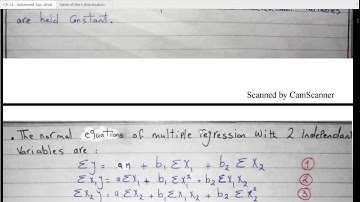 Ch 14 - Advanced Top...
Table of the t distribution
are held Constant.
Scanned by CamScanner
• The normal equations of multiple regression with 2 independent
Variables are :
Σy = an + b₁ΣX₁ + b₂ΣX₂ ①
ΣX₁y = aΣX₁ + b₁ΣX₁² + b₂ΣX₁X₂ ②
ΣX₂y = aΣX₂ + b₁ΣX₁X₂ + b₂ΣX₂² ③